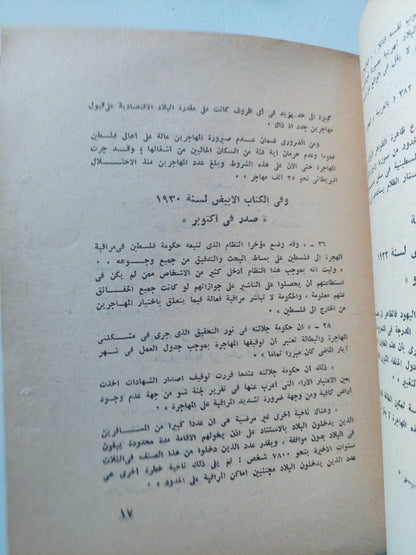 كبيرة الى حد يزيد فى أى ظروف كانت على مقدرة البلاد الاقتصادية على قبول
مهاجرين جدد اذ ذاك ٠
ومن الضرورى ضمان عدم صيرورة المهاجرين عالة على أهالى فلسطين
عموما وعدم حرمان أية فئة من السكان الحاليين من أشغالها ؛ وقد جرت
المهاجرة حتى الآن على هذه الشروط وبلغ عدد المهاجرين منذ الاحتلال
البريطانى نحو ٢٥ ألف مهاجر ٠
وفى الكتاب الابيض لسنة ١٩٣٠
« صدر فى أكتوبر »
٢٦ – « وقد وضع مؤخرا النظام الذى تتبعه حكومة فلسطين فى مراقبة
الهجرة الى فلسطين على بساط البحث والتدقيق من جميع وجوهه ٠٠
وثبت انه بموجب هذا النظام أدخل كثير من الاشخاص ممن لم يكن فى
استطاعتهم أن يحصلوا على التأشير على جوازاتهم لو كانت جميع الحقائق
عنهم معلومة ٠ والحكومة لا تباشر مراقبة فعالة فيما يتعلق باختيار المهاجرين
من الخارج الى فلسطين »
٢٨ – « ان حكومة جلالته فى نور التحقيق الذى جرى فى مشكلتى
المهاجرة والبطالة تعتبر ان توقيفها المهاجرة بموجب جدول العمل فى شهر
أيار الماضى كان مبررا تماما » ٠
« ذلك ان حكومة جلالته عندما قررت توقيف اصدار الشهادات أخذت
بعين الاعتبار الآراء التى أعرب عنها فى تقرير لجنة شو من جهة عدم وجود
أراض كافية ومن وجهة ضرورة تشديد المراقبة على المهاجرة » ٠
« وهناك ناحية أخرى غير مرضية هى ان عددا كبيرا من المسافرين
الذين يدخلون البلاد بالاستناد على اذن يخولهم الاقامة لمدة محدودة يبقون
فى البلاد بدون موافقة ، ويقدر عدد الذين دخلوا من هذا الصنف فى الثلاث
سنوات الاخيرة بنحو ٧٨٠٠ شخص ؛ ثم يلى ذلك ناحية خطرة أخرى هى
عدد الذين يدخلون البلاد مجتنبين أماكن المراقبة على الحدود » ٠
١٧